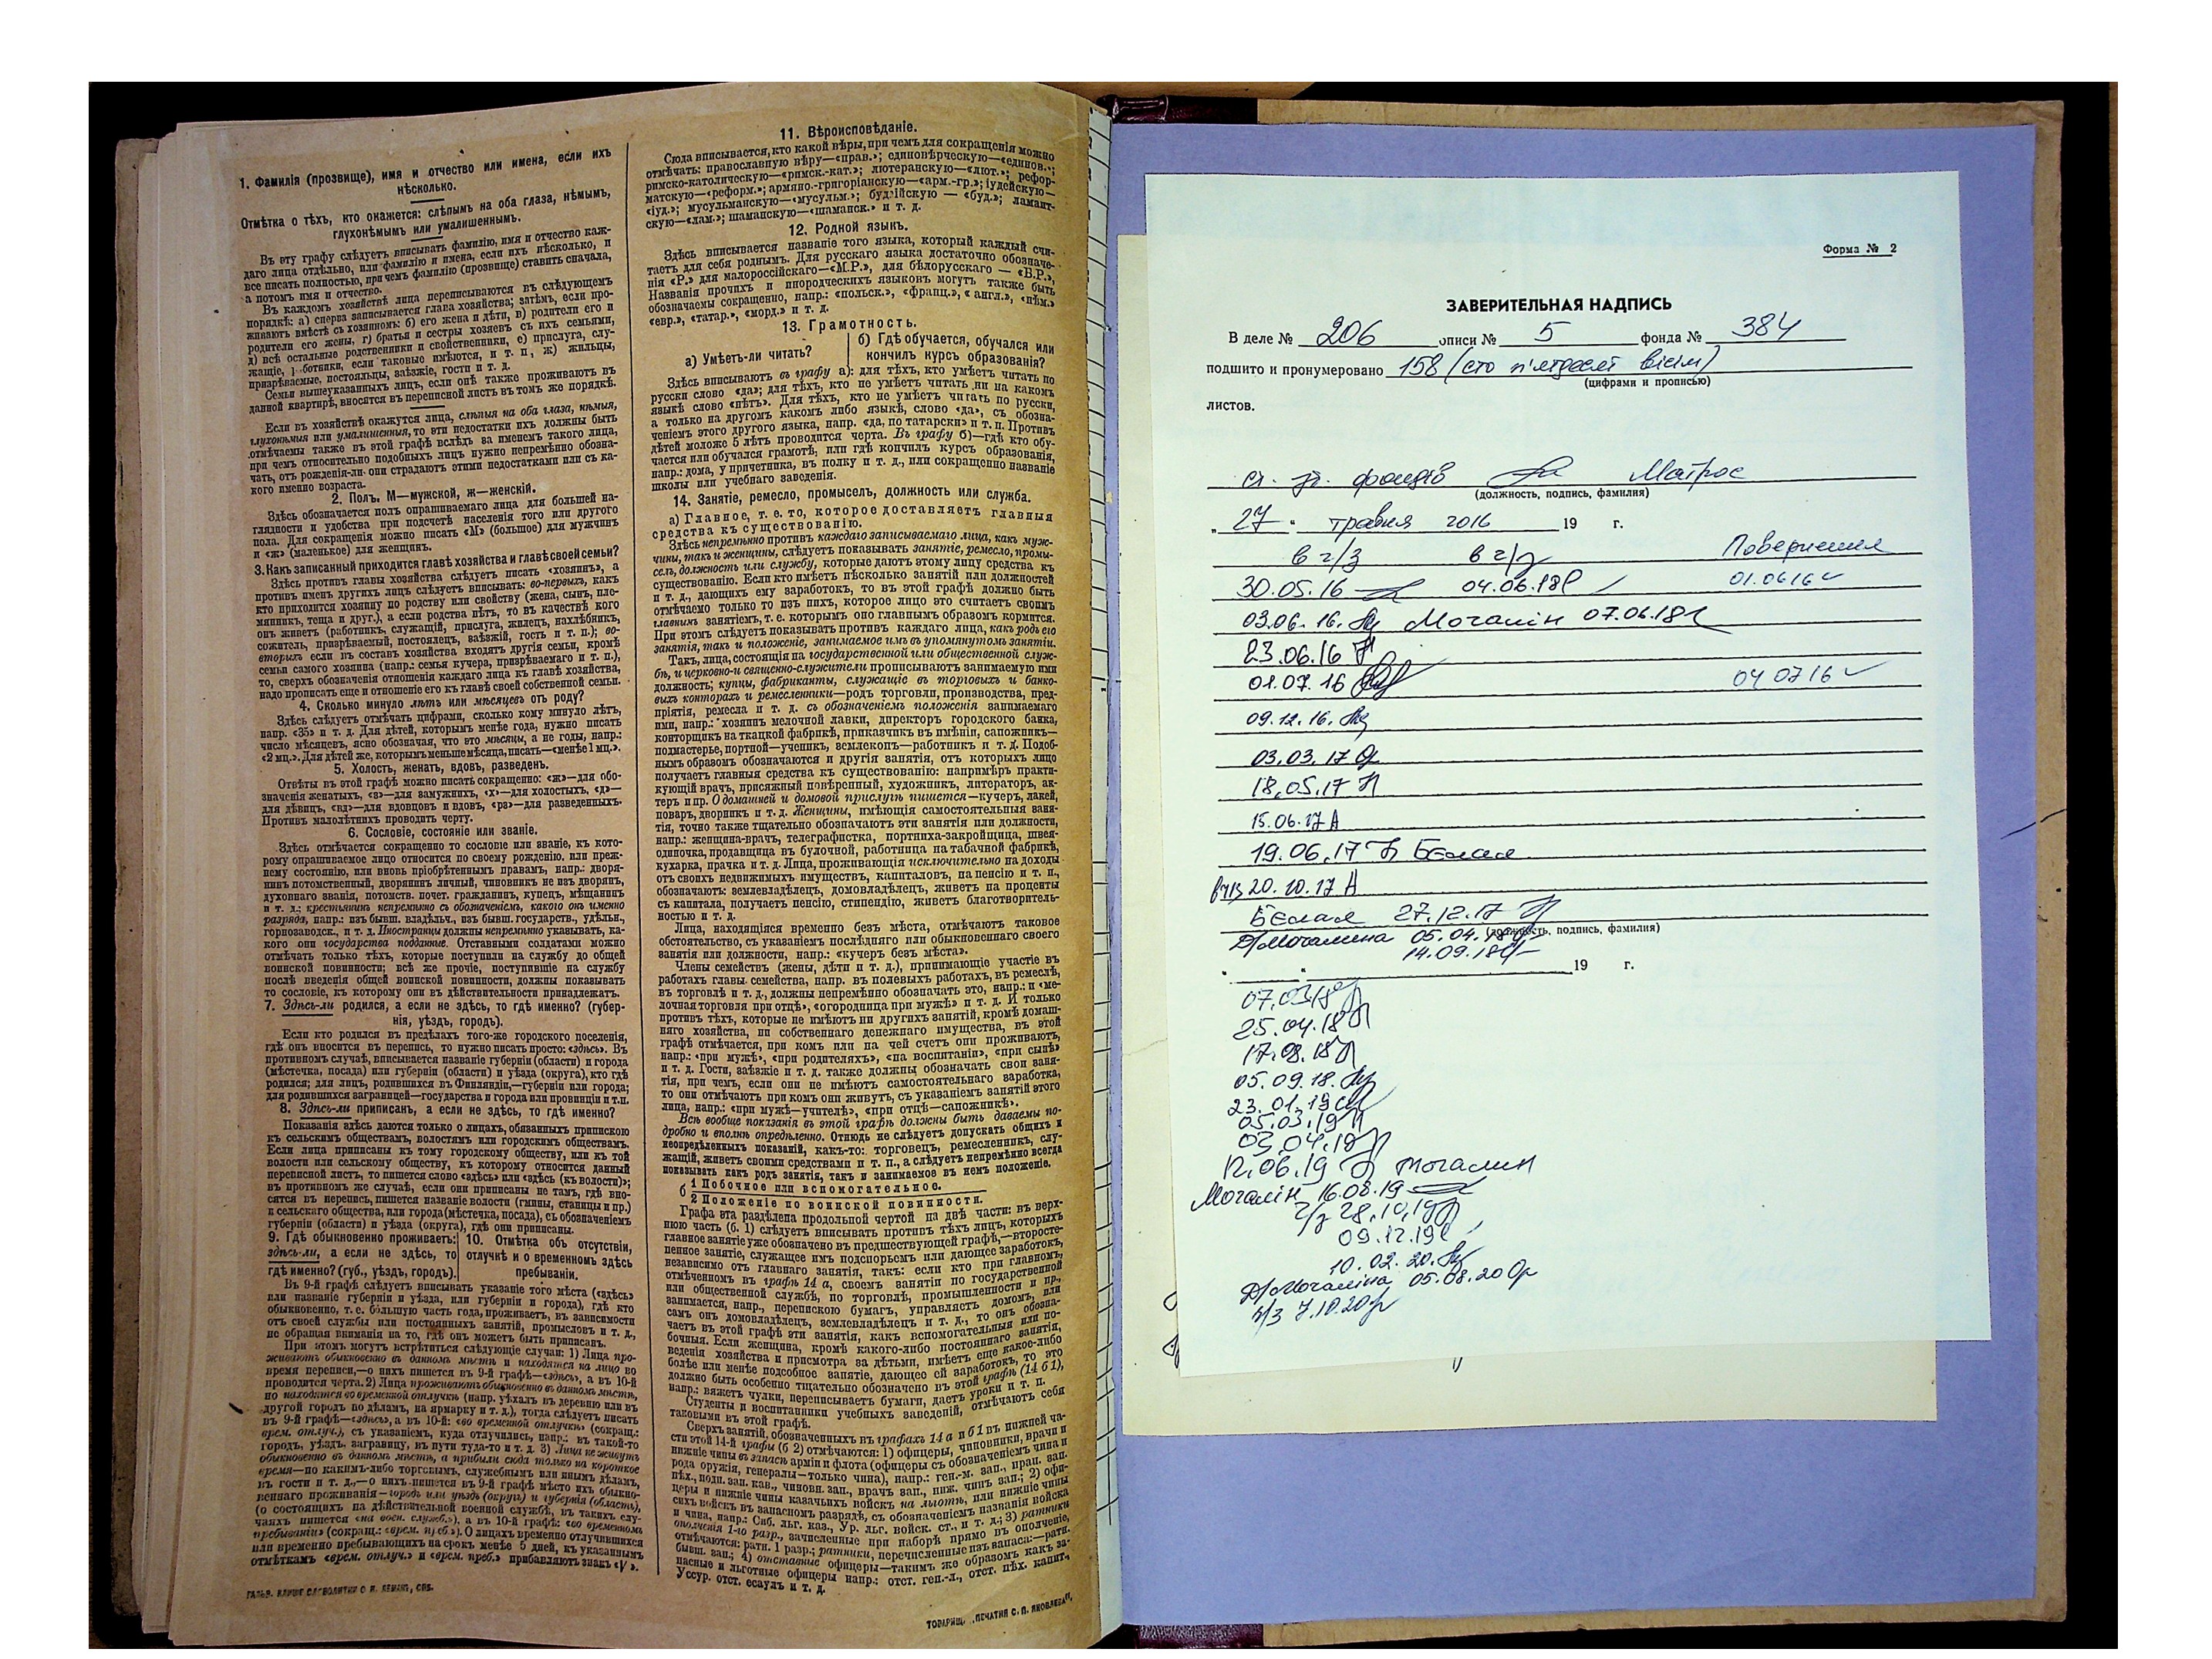 1. Фамилія (прозвище), имя и отчество или имена, если ихъ
нѣсколько.
Отмѣтка о тѣхъ, кто окажется: слѣпымъ на оба глаза, нѣмымъ,
глухонѣмымъ или умалишеннымъ.
Въ эту графу слѣдуетъ вписывать фамилію, имя и отчество каж-
даго лица отдѣльно, или фамилію и имена, если ихъ нѣсколько, и
все писать полностью, при чемъ фамилію (прозвище) ставить сначала,
а потомъ имя и отчество.
Въ каждомъ хозяйствѣ лица переписываются въ слѣдующемъ
порядкѣ: а) сперва записывается глава хозяйства; затѣмъ, если про-
живаютъ вмѣстѣ съ хозяиномъ: б) его жена и дѣти, в) родители его и
родители его жены, г) братья и сестры хозяевъ съ ихъ семьями,
д) всѣ остальные родственники и свойственники, е) прислуга, слу-
жащіе, работники, если таковые имѣются, и т. п., ж) жильцы,
призрѣваемые, постояльцы, заѣзжіе, гости и т. д.
Семьи вышеуказанныхъ лицъ, если онѣ также проживаютъ въ
данной квартирѣ, вносятся въ переписной листъ въ томъ же порядкѣ.
Если въ хозяйствѣ окажутся лица, слѣпыя на оба глаза, нѣмыя,
глухонѣмыя или умалишенныя, то эти недостатки ихъ должны быть
отмѣчаемы также въ этой графѣ вслѣдъ за именемъ такого лица,
при чемъ относительно подобныхъ лицъ нужно непремѣнно обозна-
чать, отъ рожденія-ли они страдаютъ этими недостатками или съ ка-
кого именно возраста.
2. Полъ. М—мужской, ж—женскій.
Здѣсь обозначается полъ опрашиваемаго лица для большей на-
глядности и удобства при подсчетѣ населенія того или другого
пола. Для сокращенія можно писать «М» (большое) для мужчинъ
и «ж» (маленькое) для женщинъ.
3. Какъ записанный приходится главѣ хозяйства и главѣ своей семьи?
Здѣсь противъ главы хозяйства слѣдуетъ писать «хозяинъ», а
противъ именъ другихъ лицъ слѣдуетъ вписывать: во-первыхъ, какъ
кто приходится хозяину по родству или свойству (жена, сынъ, пле-
мянникъ, теща и друг.), а если родства нѣтъ, то въ качествѣ кого
онъ живетъ (работникъ, служащій, прислуга, жилецъ, нахлѣбникъ,
сожитель, призрѣваемый, постоялецъ, заѣзжій, гость и т. п.); во-
вторыхъ если въ составъ хозяйства входятъ другія семьи, кромѣ
семьи самого хозяина (напр.: семья кучера, призрѣваемаго и т. п.),
то, сверхъ обозначенія отношенія каждаго лица къ главѣ хозяйства,
надо прописать еще и отношеніе его къ главѣ своей собственной семьи.
4. Сколько минуло лѣтъ или мѣсяцевъ отъ роду?
Здѣсь слѣдуетъ отмѣчать цифрами, сколько кому минуло лѣтъ,
напр. «35» и т. д. Для дѣтей, которымъ менѣе года, нужно писать
число мѣсяцевъ, ясно обозначая, что это мѣсяцы, а не годы, напр.:
«2 мц.». Для дѣтей же, которымъ меньше мѣсяца, писать—«менѣе 1 мц.».
5. Холостъ, женатъ, вдовъ, разведенъ.
Отвѣты въ этой графѣ можно писать сокращенно: «ж»—для обо-
значенія женатыхъ, «з»—для замужнихъ, «х»—для холостыхъ, «д»—
для дѣвицъ, «вд»—для вдовцовъ и вдовъ, «рз»—для разведенныхъ.
Противъ малолѣтнихъ проводить черту.
6. Сословіе, состояніе или званіе.
Здѣсь отмѣчается сокращенно то сословіе или званіе, къ кото-
рому опрашиваемое лицо относится по своему рожденію, или преж-
нему состоянію, или вновь пріобрѣтеннымъ правамъ, напр.: дворя-
нинъ потомственный, дворянинъ личный, чиновникъ не изъ дворянъ,
духовнаго званія, потомств. почет. гражданинъ, купецъ, мѣщанинъ
и т. д.; крестьянинъ непремѣнно съ обозначеніемъ, какого онъ именно
разряда, напр.: изъ бывш. владѣльч., изъ бывш. государств., удѣльн.,
горнозаводск., и т. д. Иностранцы должны непремѣнно указывать, ка-
кого они государства подданные. Отставными солдатами можно
отмѣчать только тѣхъ, которые поступили на службу до общей
воинской повинности; всѣ же прочіе, поступившіе на службу
послѣ введенія общей воинской повинности, должны показывать
то сословіе, къ которому они въ дѣйствительности принадлежатъ.
7. Здѣсь-ли родился, а если не здѣсь, то гдѣ именно? (губер-
нія, уѣздъ, городъ).
Если кто родился въ предѣлахъ того-же городского поселенія,
гдѣ онъ вносится въ перепись, то нужно писать просто: «здѣсь». Въ
противномъ случаѣ, вписывается названіе губерніи (области) и города
(мѣстечка, посада) или губерніи (области) и уѣзда (округа), кто гдѣ
родился; для лицъ, родившихся въ Финляндіи,—губерніи или города;
для родившихся заграницей—государства и города или провинціи и т.п.
8. Здѣсь-ли приписанъ, а если не здѣсь, то гдѣ именно?
Показанія здѣсь даются только о лицахъ, обязанныхъ припискою
къ сельскимъ обществамъ, волостямъ или городскимъ обществамъ.
Если лица приписаны къ тому городскому обществу, или къ той
волости или сельскому обществу, къ которому относится данный
переписной листъ, то пишется слово «здѣсь» или «здѣсь (къ волости)»;
въ противномъ же случаѣ, если они приписаны не тамъ, гдѣ вно-
сятся въ перепись, пишется названіе волости (гмины, станицы и пр.)
и сельскаго общества, или города (мѣстечка, посада), съ обозначеніемъ
губерніи (области) и уѣзда (округа), гдѣ они приписаны.
9. Гдѣ обыкновенно проживаетъ:
здѣсь-ли, а если не здѣсь, то
гдѣ именно? (губ., уѣздъ, городъ).
10. Отмѣтка объ отсутствіи,
отлучкѣ и о временномъ здѣсь
пребываніи.
Въ 9-й графѣ слѣдуетъ вписывать указаніе того мѣста («здѣсь»
или названіе губерніи и уѣзда, или губерніи и города), гдѣ кто
обыкновенно, т. е. бо́льшую часть года, проживаетъ, въ зависимости
отъ своей службы или постоянныхъ занятій, промысловъ и т. д.,
не обращая вниманія на то, гдѣ онъ можетъ быть приписанъ.
При этомъ могутъ встрѣтиться слѣдующіе случаи: 1) Лица про-
живаютъ обыкновенно въ данномъ мѣстѣ и находятся на лицо во
время переписи,—о нихъ пишется въ 9-й графѣ—«здѣсь», а въ 10-й
проводится черта. 2) Лица проживаютъ обыкновенно въ данномъ мѣстѣ,
но находятся во временной отлучкѣ (напр. уѣхалъ въ деревню или въ
другой городъ по дѣламъ, на ярмарку и т. д.), тогда слѣдуетъ писать
въ 9-й графѣ—«здѣсь», а въ 10-й: «во временной отлучкѣ» (сокращ.:
врем. отлуч.), съ указаніемъ, куда отлучились, напр.: въ такой-то
городъ, уѣздъ, заграницу, въ пути туда-то и т. д. 3) Лица не живутъ
обыкновенно въ данномъ мѣстѣ, а прибыли сюда только на короткое
время—по какимъ-либо торговымъ, служебнымъ или инымъ дѣламъ,
въ гости и т. д.,—о нихъ пишется въ 9-й графѣ мѣсто ихъ обыкно-
веннаго проживанія—городъ или уѣздъ (округъ) и губернія (область),
(о состоящихъ на дѣйствительной военной службѣ, въ такихъ слу-
чаяхъ пишется «на воен. служб.»), а въ 10-й графѣ: «во временномъ
пребываніи» (сокращ.: «врем. преб.»). О лицахъ временно отлучившихся
или временно пребывающихъ на срокъ менѣе 5 дней, къ указаннымъ
отмѣткамъ «врем. отлуч.» и «врем. преб.» прибавляютъ знакъ «V».
11. Вѣроисповѣданіе.
Сюда вписывается, кто какой вѣры, при чемъ для сокращенія можно
отмѣчать: православную вѣру—«прав.»; единовѣрческую—«единов.»;
римско-католическую—«римск.-кат.»; лютеранскую—«лют.»; рефор-
матскую—«реформ.»; армяно-григоріанскую—«арм.-гр.»; іудейскую—
«іуд.»; мусульманскую—«мусульм.»; буддійскую — «буд.»; ламаит-
скую—«лам.»; шаманскую—«шаманск.» и т. д.
12. Родной языкъ.
Здѣсь вписывается названіе того языка, который каждый счи-
таетъ для себя роднымъ. Для русскаго языка достаточно обозначе-
нія «Р.» для малороссійскаго—«М.Р.», для бѣлорусскаго — «Б.Р.».
Названія прочихъ и инородческихъ языковъ могутъ также быть
обозначаемы сокращенно, напр.: «польск.», «франц.», «англ.», «нѣм.»
«евр.», «татар.», «морд.» и т. д.
13. Грамотность.
а) Умѣетъ-ли читать?
б) Гдѣ обучается, обучался или
кончилъ курсъ образованія?
Здѣсь вписываютъ въ графу а): для тѣхъ, кто умѣетъ читать по
русски слово «да»; для тѣхъ, кто не умѣетъ читать ни на какомъ
языкѣ слово «нѣтъ». Для тѣхъ, кто не умѣетъ читать по русски,
а только на другомъ какомъ либо языкѣ, слово «да», съ обозна-
ченіемъ этого другого языка, напр. «да, по татарски» и т. п. Противъ
дѣтей моложе 5 лѣтъ проводится черта. Въ графу б)—гдѣ кто обу-
чается или обучался грамотѣ, или гдѣ кончилъ курсъ образованія,
напр.: дома, у причетника, въ полку и т. д., или сокращенно названіе
школы или учебнаго заведенія.
14. Занятіе, ремесло, промыселъ, должность или служба.
а) Главное, т. е. то, которое доставляетъ главныя
средства къ существованію.
Здѣсь непремѣнно противъ каждаго записываемаго лица, какъ муж-
чины, такъ и женщины, слѣдуетъ показывать занятіе, ремесло, промы-
селъ, должность или службу, которые даютъ этому лицу средства къ
существованію. Если кто имѣетъ нѣсколько занятій или должностей
и т. д., дающихъ ему заработокъ, то въ этой графѣ должно быть
отмѣчаемо только то изъ нихъ, которое лицо это считаетъ своимъ
главнымъ занятіемъ, т. е. которымъ оно главнымъ образомъ кормится.
При этомъ слѣдуетъ показывать противъ каждаго лица, какъ родъ его
занятія, такъ и положеніе, занимаемое имъ въ упомянутомъ занятіи.
Такъ, лица, состоящія на государственной или общественной служ-
бѣ, и церковно-и священно-служители прописываютъ занимаемую ими
должность; купцы, фабриканты, служащіе въ торговыхъ и банко-
выхъ конторахъ и ремесленники—родъ торговли, производства, пред-
пріятія, ремесла и т. д. съ обозначеніемъ положенія занимаемаго
ими, напр.: хозяинъ мелочной лавки, директоръ городского банка,
конторщикъ на ткацкой фабрикѣ, приказчикъ въ имѣніи, сапожникъ—
подмастерье, портной—ученикъ, землекопъ—работникъ и т. д. Подоб-
нымъ образомъ обозначаются и другія занятія, отъ которыхъ лицо
получаетъ главныя средства къ существованію: напримѣръ практи-
кующій врачъ, присяжный повѣренный, художникъ, литераторъ, ак-
теръ и пр. О домашней и домовой прислугѣ пишется—кучеръ, лакей,
поваръ, дворникъ и т. д. Женщины, имѣющія самостоятельныя заня-
тія, точно также тщательно обозначаютъ эти занятія или должности,
напр.: женщина-врачъ, телеграфистка, портниха-закройщица, швея-
одиночка, продавщица въ булочной, работница на табачной фабрикѣ,
кухарка, прачка и т. д. Лица, проживающія исключительно на доходы
отъ своихъ недвижимыхъ имуществъ, капиталовъ, на пенсію и т. п.,
обозначаютъ: землевладѣлецъ, домовладѣлецъ, живетъ на проценты
съ капитала, получаетъ пенсію, стипендію, живетъ благотворитель-
ностью и т. д.
Лица, находящіяся временно безъ мѣста, отмѣчаютъ таковое
обстоятельство, съ указаніемъ послѣдняго или обыкновеннаго своего
занятія или должности, напр.: «кучеръ безъ мѣста».
Члены семействъ (жены, дѣти и т. д.), принимающіе участіе въ
работахъ главы семейства, напр. въ полевыхъ работахъ, въ ремеслѣ,
въ торговлѣ и т. д., должны непремѣнно обозначать это, напр.: «ме-
лочная торговля при отцѣ», «огородница при мужѣ» и т. д. И только
противъ тѣхъ, которые не имѣютъ ни другихъ занятій, кромѣ домаш-
няго хозяйства, ни собственнаго денежнаго имущества, въ этой
графѣ отмѣчается, при комъ или на чей счетъ они проживаютъ,
напр.: «при мужѣ», «при родителяхъ», «на воспитаніи», «при сынѣ»
и т. д. Гости, заѣзжіе и т. д. также должны обозначать свои заня-
тія, при чемъ, если они не имѣютъ самостоятельнаго заработка,
то они отмѣчаютъ при комъ они живутъ, съ указаніемъ занятій этого
лица, напр.: «при мужѣ—учителѣ», «при отцѣ—сапожникѣ».
Всѣ вообще показанія въ этой графѣ должны быть даваемы по-
дробно и вполнѣ опредѣленно. Отнюдь не слѣдуетъ допускать общихъ и
неопредѣленныхъ показаній, какъ-то: торговецъ, ремесленникъ, слу-
жащій, живетъ своими средствами и т. п., а слѣдуетъ непремѣнно всегда
показывать какъ родъ занятія, такъ и занимаемое въ немъ положеніе.
б 1 Побочное или вспомогательное.
2 Положеніе по воинской повинности.
Графа эта раздѣлена продольной чертой на двѣ части: въ верх-
нюю часть (б. 1) слѣдуетъ вписывать противъ тѣхъ лицъ, которыхъ
главное занятіе уже обозначено въ предшествующей графѣ,—второсте-
пенное занятіе, служащее имъ подспорьемъ или дающее заработокъ,
независимо отъ главнаго занятія, такъ: если кто при главномъ,
отмѣченномъ въ графѣ 14 а, своемъ занятіи по государственной
или общественной службѣ, по торговлѣ, промышленности и пр.,
занимается, напр., перепискою бумагъ, управляетъ домомъ, или
самъ онъ домовладѣлецъ, землевладѣлецъ и т. д., то онъ обозна-
чаетъ въ этой графѣ эти занятія, какъ вспомогательныя или по-
бочныя. Если женщина, кромѣ какого-либо постояннаго занятія,
веденія хозяйства и присмотра за дѣтьми, имѣетъ еще какое-либо
болѣе или менѣе подсобное занятіе, дающее ей заработокъ, то это
должно быть особенно тщательно обозначено въ этой графѣ (14 б 1),
напр.: вяжетъ чулки, переписываетъ бумаги, даетъ уроки и т. п.
Студенты и воспитанники учебныхъ заведеній, отмѣчаютъ себя
таковыми въ этой графѣ.
Сверхъ занятій, обозначенныхъ въ графахъ 14 а и б 1 въ нижней ча-
сти этой 14-й графы (б 2) отмѣчаются: 1) офицеры, чиновники, врачи и
нижніе чины въ запасѣ арміи и флота (офицеры съ обозначеніемъ чина и
рода оружія, генералы—только чина), напр.: ген.-м. зап., прап. зап.
пѣх., подп. зап. кав., чиновн. зап., врачъ зап., ниж. чинъ зап.; 2) офи-
церы и нижніе чины казачьихъ войскъ на льготѣ, или нижніе чины
сихъ войскъ въ запасномъ разрядѣ, съ обозначеніемъ названія войска
и чина, напр.: Сиб. льг. каз., Ур. льг. войск. ст., и т. д.; 3) ратники
ополченія 1-го разр., зачисленные при наборѣ прямо въ ополченіе,
отмѣчаются: ратн. 1 разр.; ратники, перечисленные изъ запаса:—ратн.
бывш. зап.; 4) отставные офицеры—такимъ же образомъ какъ за-
пасные и льготные офицеры напр.: отст. ген.-л., отст. пѣх. капит.,
Уссур. отст. есаулъ и т. д.
Форма № 2
ЗАВЕРИТЕЛЬНАЯ НАДПИСЬ
В деле № 206 описи № 5 фонда № 384
подшито и пронумеровано 158 (сто п'ятдесят вісім)
(цифрами и прописью)
листов.
ст. зб. фондів Матрос
(должность, подпись, фамилия)
„ 27 “ травня 2016 19 г.
в ч/з в ч/з Повернення
30.05.16 04.06.18 01.06.16
03.06.16. Мочалін 07.06.18
23.06.16
01.07.16 04.07.16
09.12.16.
03.03.17
18.05.17
15.06.17
19.06.17 Бєлая
в ч/з 20.10.17
Бєлая 27.12.17
Мочалина 05.04.18
(должность, подпись, фамилия)
14.09.18
19 г.
07.03.18
25.04.18
17.08.18
05.09.18.
23.01.19
05.03.19
03.04.19
12.06.19 Мочалин
Мочалін 16.08.19
ч/з 28.10.19
09.12.19
10.02.20.
Мочаліна 05.08.20
ч/з 7.10.20